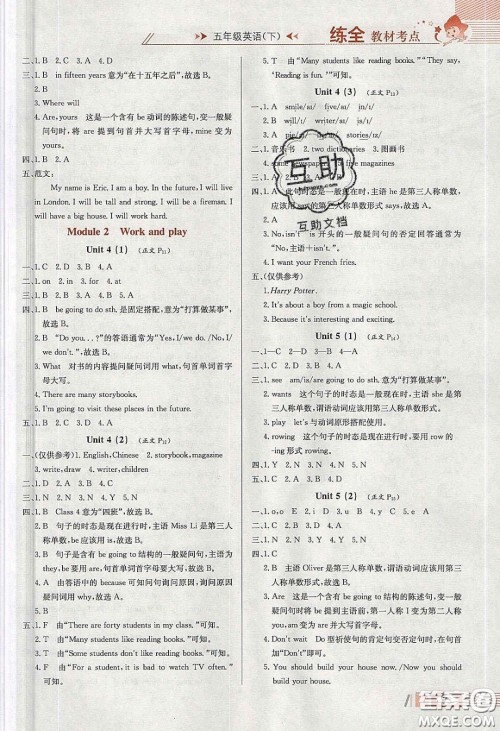 五年级英语(下)
练全 教材考点
二、1. B 2. C 3. A
三、1. B in fifteen years 意为“在十五年之后”,故选 B。
2. B
3. Where will
4. Are,yours 这是一个含有 be 动词的陈述句,变一般疑
问句时,将 are 提到句首并大写首字母,mine 变为
yours。
四、1. B 2. A
五、范文:
My name is Eric, I am a boy. In the future, I will live
in London. I will be tall and strong, I will be a fireman. I
will have a big house. I will work hard.
Module 2 Work and play
Unit 4 (1) (正文 P11)
一、1. C 2. D 3. B
二、1. on 2. in 3. for 4. at
三、1. B 2. A 3. C 4. D
四、1. B be going to do sth. 是固定搭配,意为“打算做某事”,
故选 B。
2. B “Do you. . . ?”的答语通常为“Yes, I/we do. /No, I/we
don't.”,故选 B。
3. What 对书的内容提问疑问词用 what,句首单词首字
母大写。
4. There are many storybooks.
5. I'm going to visit these places in the future.
五、1. B 2. D 3. A 4. C
Unit 4 (2) (正文 P12)
一、(仅供参考) 1. English,Chinese 2. storybook,magazine
3. write,draw 4. writer,children
二、1. A 2. D 3. A 4. C
三、1. Y 2. N 3. Y 4. Y 5. N
四、1. B Class 4 意为“四班”,故选 B。
2. B 句子的时态是现在进行时,主语 Miss Li 是第三人
称单数,故选 B。
3. B 句子是含有 be going to 结构的一般疑问句,主语为
they,be 动词用 are,句首单词首字母要大写,故选 B。
4. A 由答语中的 because 可知问句询问原因,询问原因
疑问词用 why,故选 A。
5. B
五、1. F 由“There are forty students in my class.”可知。
2. T 由“Many students like reading books.”可知。
3. F 由“Some students don't like reading books.”可知。
4. F 由“And it is also bad to watch TV often.”可知。
5. T 由“Many students like reading books.” “They say,
‘Reading is fun.’”可知。
Unit 4 (3) (正文 P13)
二、1. A
2. B
3. A
三、1. 音乐书 2. two dictionaries 3. 图画书
magazines
四、1. A 此句时态是一般现在时,主语 he 是第三人称单数,
3. No,isn't
“No,主语+isn't.”。
4. I want your French fries.
五、(仅供参考)
1. Harry Potter.
2. It's about a boy from a magic school.
3. Because it's interesting and exciting.
Unit 5 (1) (正文 P14)
一、1—C 2—D 3—B 4—A
三、1. see am/is/are going to do sth. 意为“打算做某事”。
2. wants 这个句子的时态是一般现在时,主语 she 是第
三人称单数,谓语动词应该用第三人称单数形式。
3. play let's 与动词原形搭配使用。
4. rowing 这个句子的时态是现在进行时,要用 row 的
-ing 形式 rowing。
五、1. C 2. A 3. D 4. B
Unit 5 (2) (正文 P15)
一、1. o,o 2. ea 3. i,i 4. oo
二、1. D 2. A 3. C 4. B
三、1. Y 2. N 3. N 4. Y 5. N
四、1. C
2. B 主语 Oliver 是第三人称单数,谓语动词应该用第三
人称单数形式,故选 B。
3. Are you 这是一个含有 be going to 结构的陈述句,变一
般疑问句时将 be 提到主语前,第一人称 I 变为第二人
称 you,am 变为 are 并大写首字母。
4. Don't wait Do 型祈使句的肯定句变否定句时,在句首
加“Don't”即可。
5. You should build your house now./You should now
build your house.
互助
互助文档
MXQE.COM